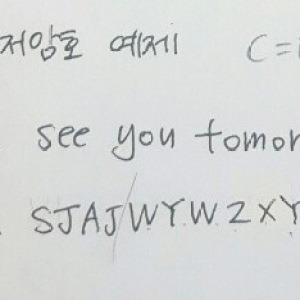 저암호 예제 C=
see you tomor
SJAJWYWZXY